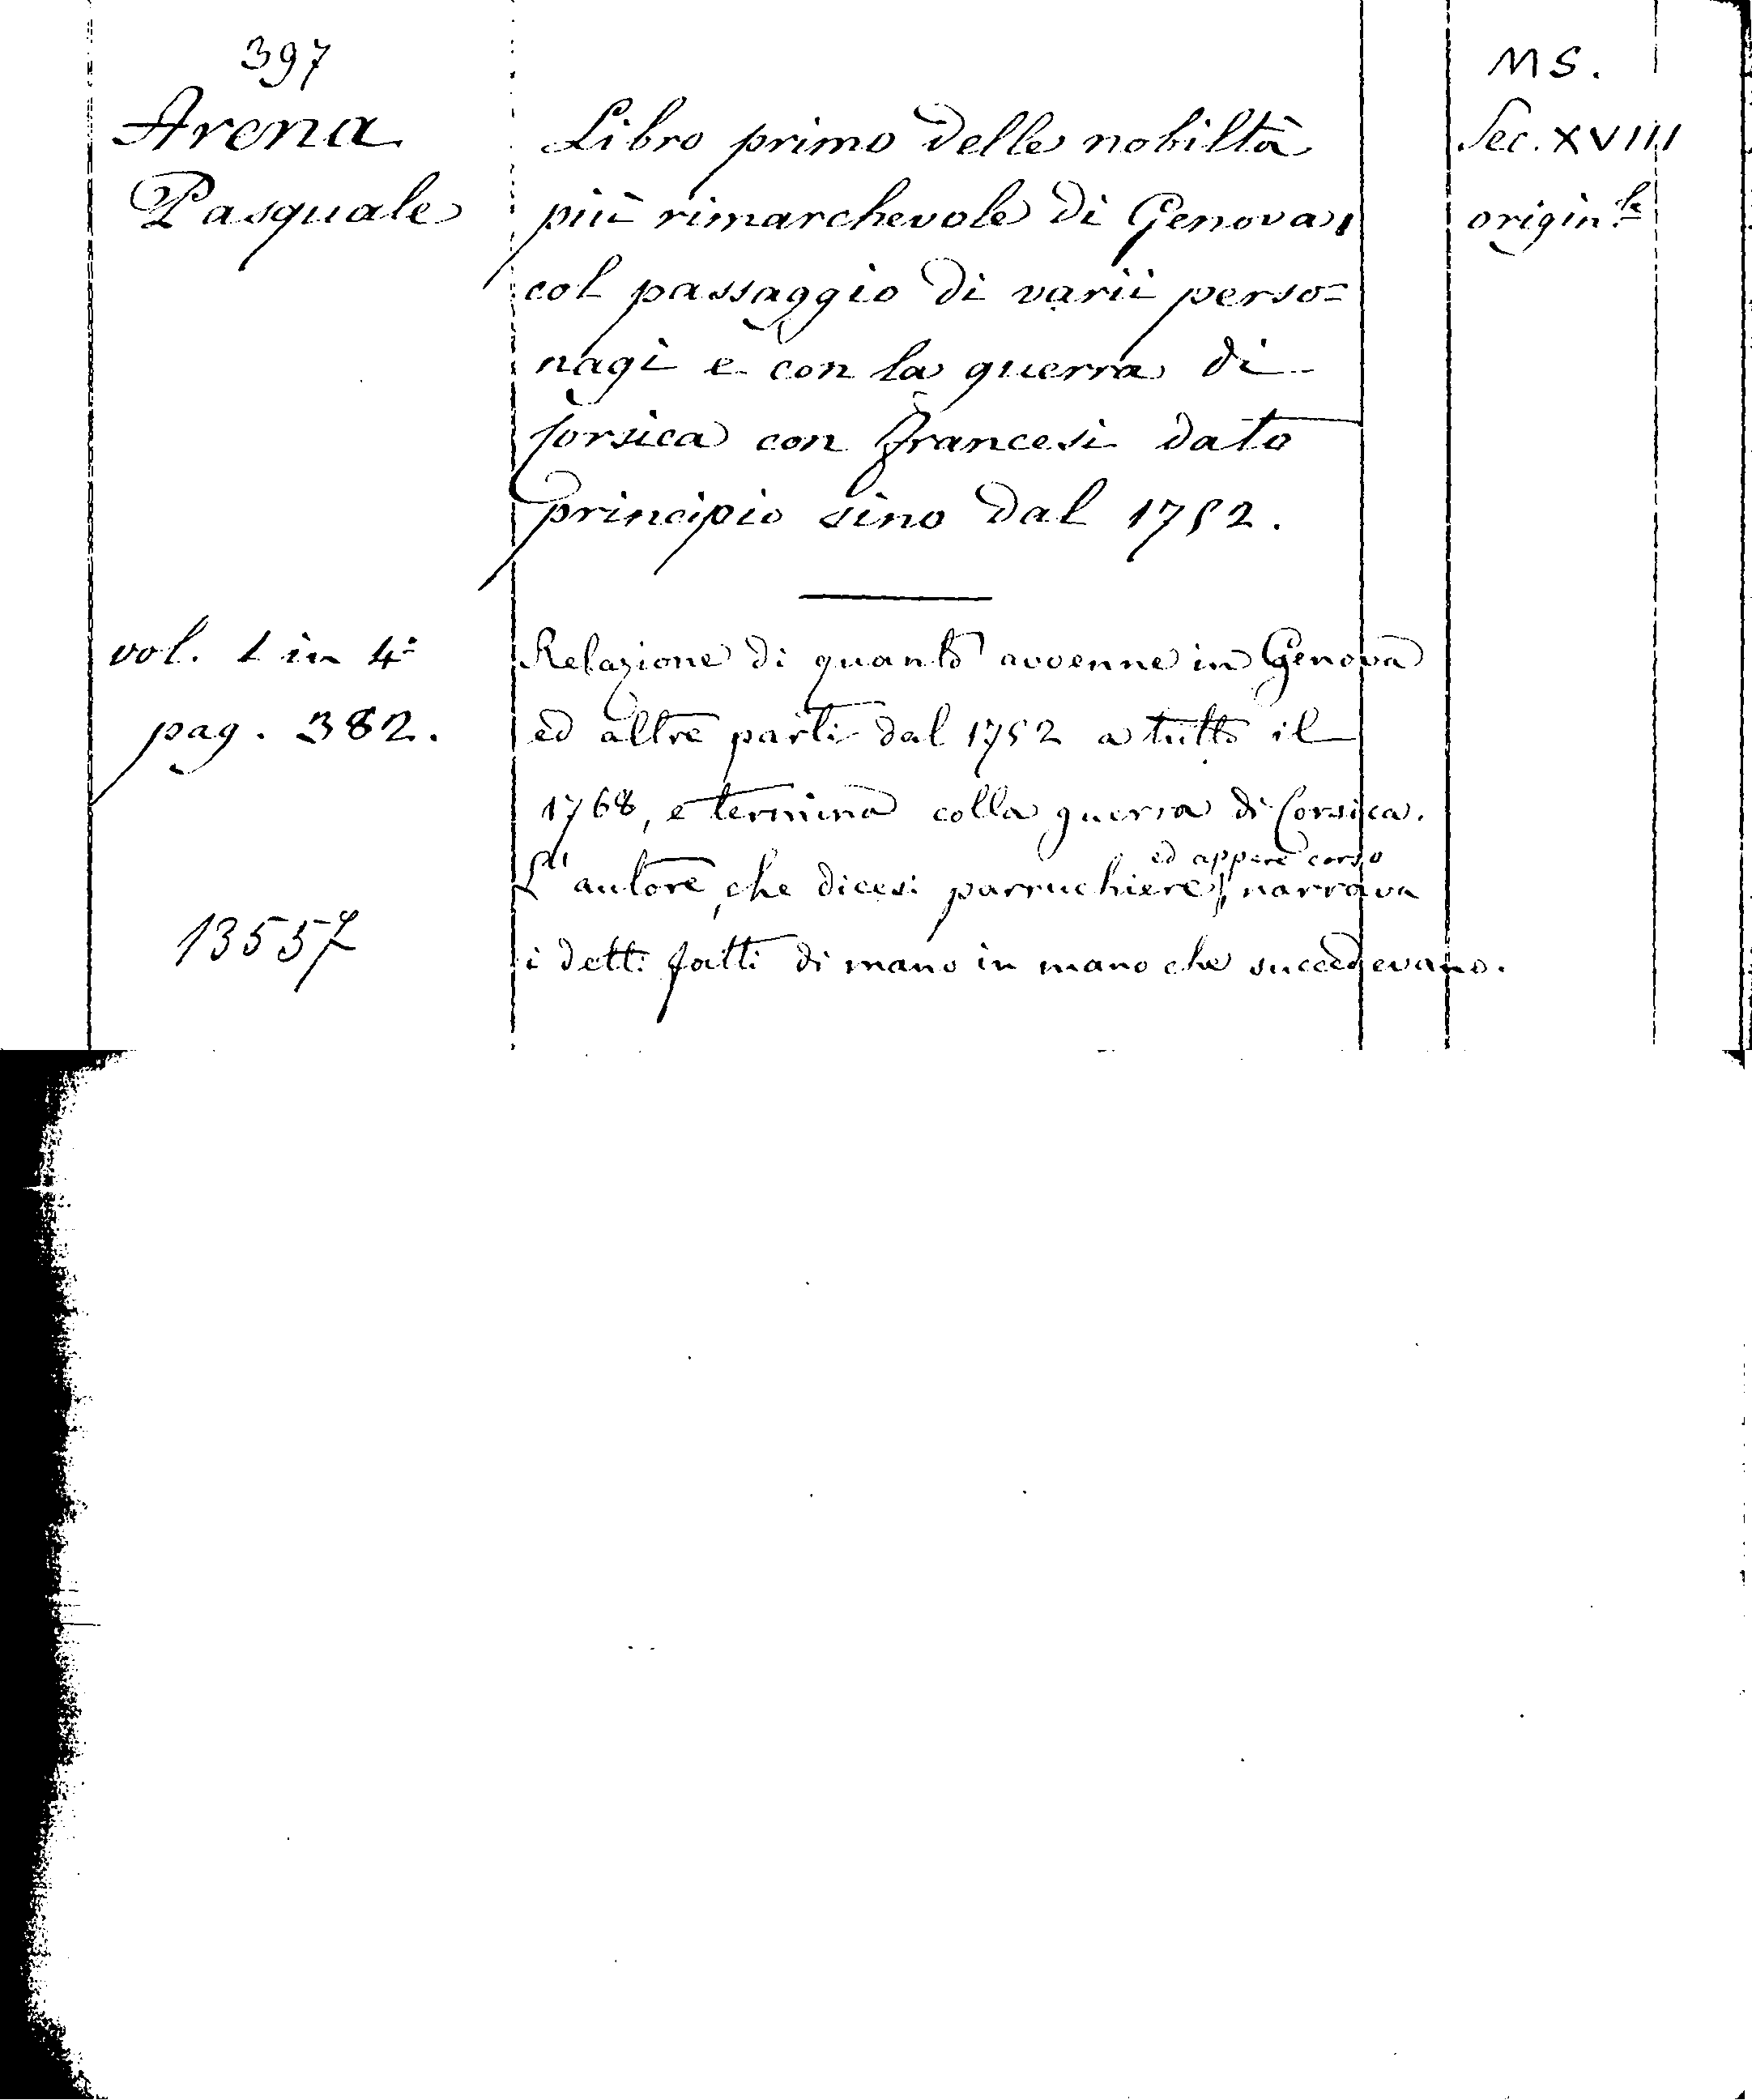 397
Arena
Pasquale
Libro primo delle nobiltà
più rimarchevole di Genova,
col passaggio di varii perso=
nagi e con la guerra di
Corsica con francesi dato
principio sino dal 1752.
MS.
Sec. XVIII
origin.le
vol. 1 in 4°
pag. 382.
13557
Relazione di quanto avvenne in Genova
ed altre parti dal 1752 a tutto il
1768, e termina colla guerra di Corsica.
ed appare corso
L'autore, che dicesi parruchiere, narrava
i detti fatti di mano in mano che succedevano.